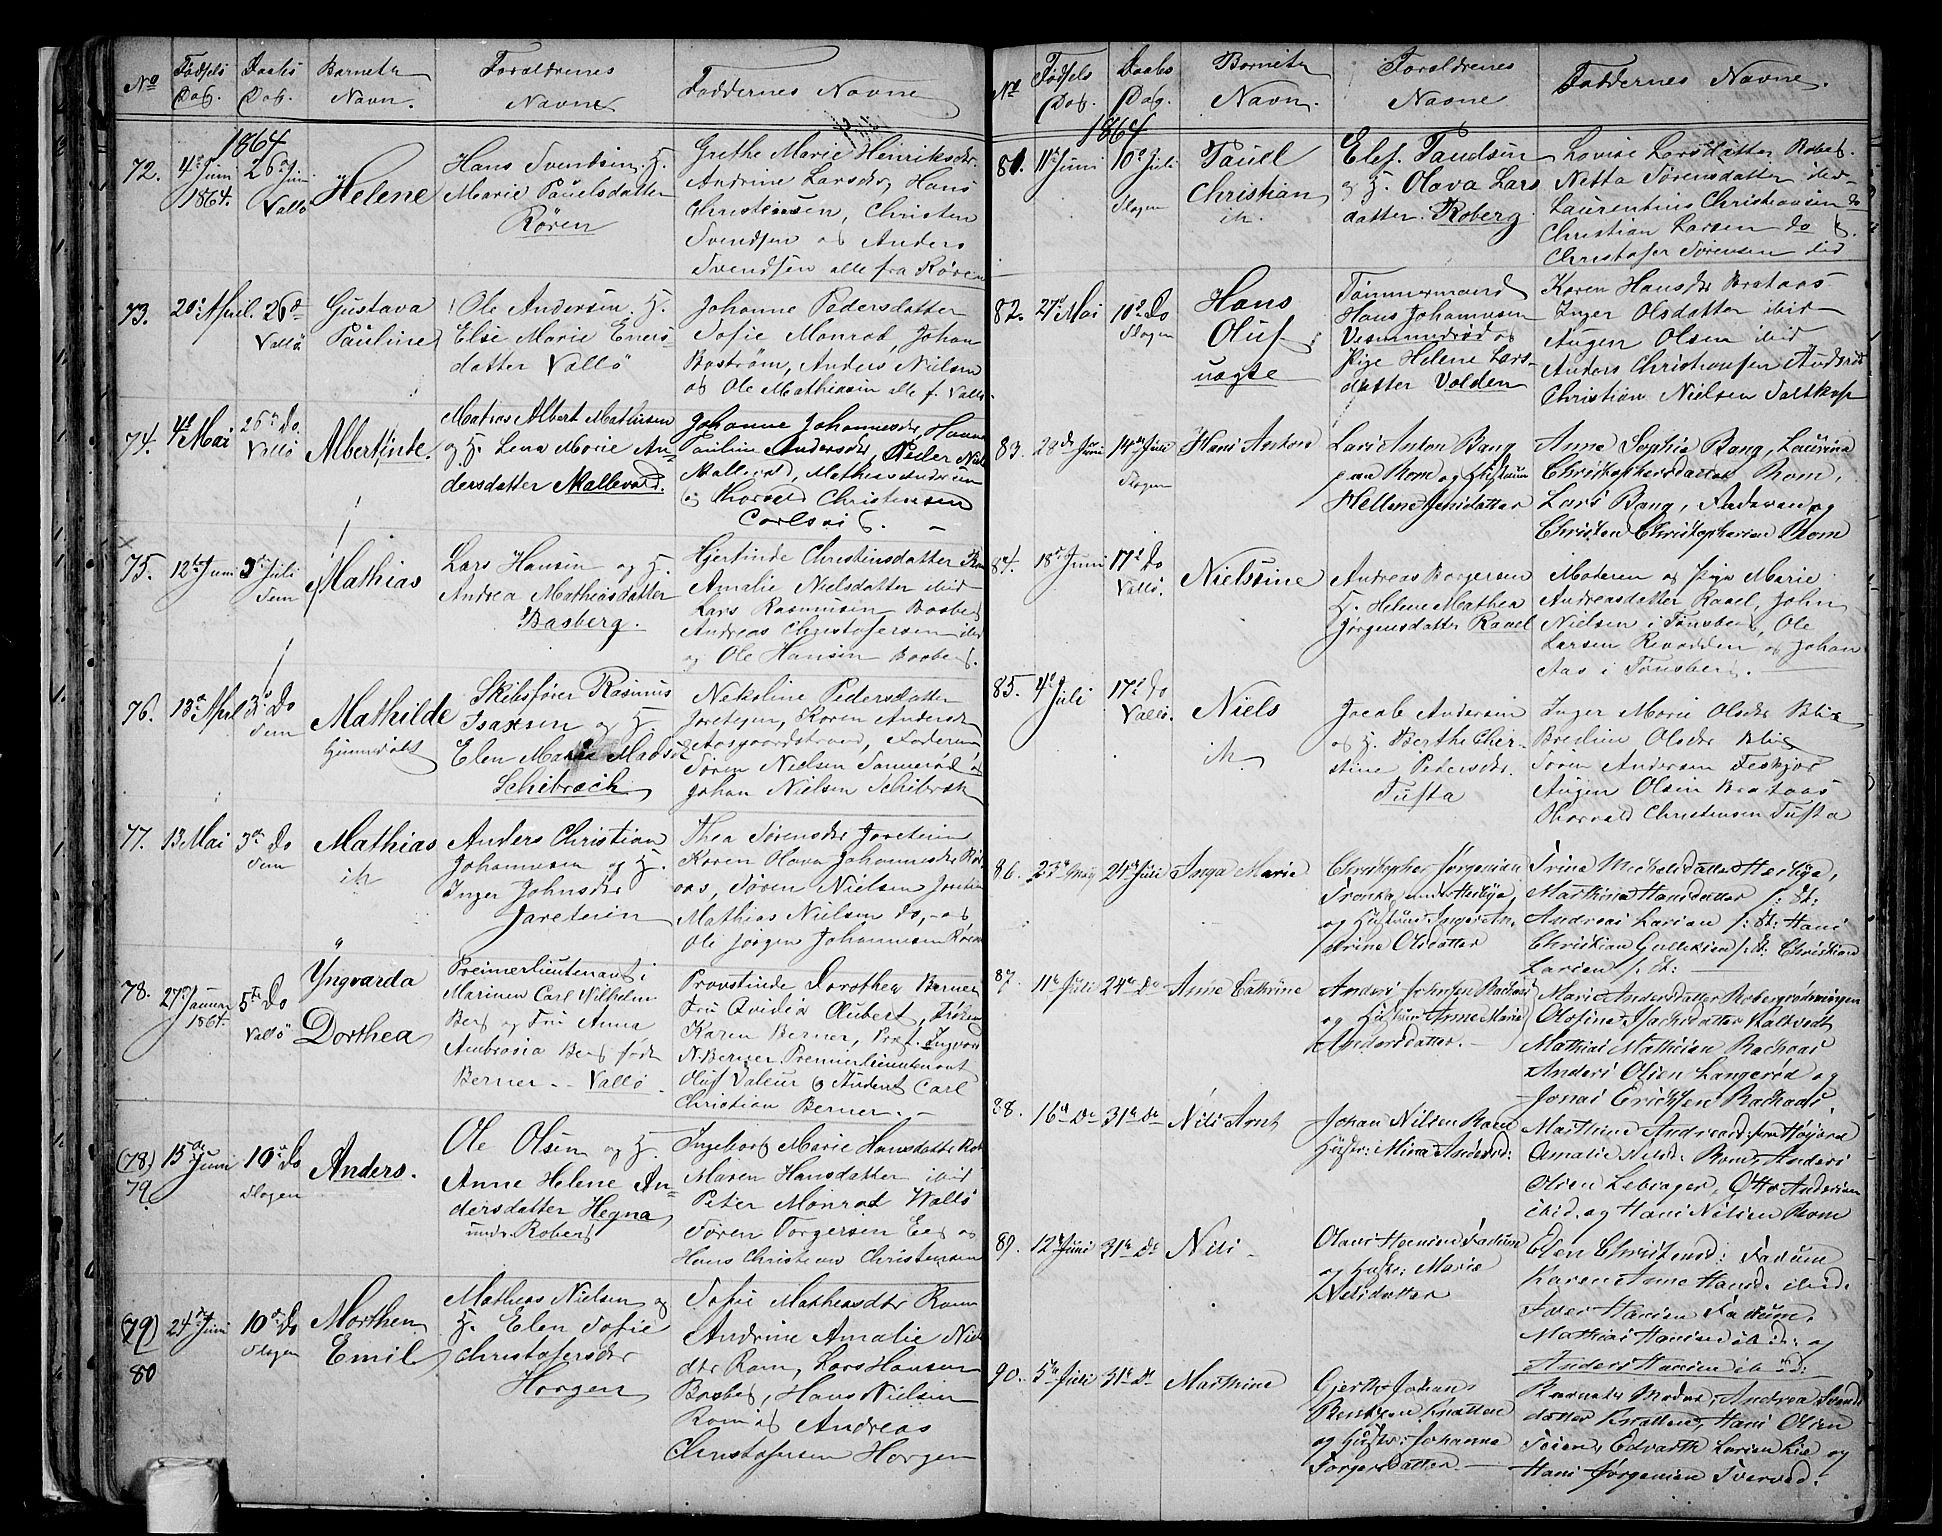 No
Fødsels
Dag.
Daabs
Dag.
Barnets
Navn.
Forældrenes
Navne
Faddernes Navne
1864
72.
4de Juni
1864.
26de Juni
Vallö
Helene
Hans Svendsen H.
Marie Paulsdatter
Rören
Grethe Marie Henriksdtr
Andrine Larsdtr, Hans
Christensen, Christen
Svendsen og Anders
Svendsen alle fra Rören
73.
20de April.
26de
Vallö
Gustava
Pauline
Ole Andersen. H.
Else Marie Eners
datter Vallö
Johanne Pedersdatter
Sofie Monrad, Johan
Boström, Anders Nielsen
og Ole Mathiesen alle f. Vallö
74.
4de Mai
26de Do
Vallö
Albertine.
Matros Albert Mathisen
og H. Lena Marie An
dersdatter Mallevold.
Johanne Johannesdtr, Hanna
Pauline Andersdtr, Peder Niels
Mallevold, Mathias Andersen
og Thorvald Christensen
Carlsvig.
75.
12te Juni
3de Juli
Sem
Mathias
Lars Hansen og H.
Andrea Mathiasdatter
Basberg.
Hjertinde Christinsdatter
Amalie Nielsdatter ibid
Lars Rasmusen Basberg
Andreas Christofersen ibid
og Ole Hansen Basberg.
76.
13de April
3de Do
Sem
Mathilde
hjemmedöbt
Skibsfører Rasmus
Isaksen og H.
Elen Marie Mads
Schibrech
Nekoline Pedersdatter
Jareteien, Karen Andersdtr
Aasgaardstrand, Faderen
Sören Nielsen og
Johan Nielsen Schibrek
77.
13 Mai
3de Do
Sem
Mathias
ih
Anders Christian
Johannesen og H.
Inger Johnsdtr
Jareteien
Thea Sörensdtr Jareteien
Karen Olava Johannesdtr
Sören Nielsen
Mathias Nielsen do, og
Ole Jörgen Johannesen Rören
78.
27de Januar
1864.
5te Do
Vallö
Yngvarda
Dorthea
Premierlieutenant i
Marinen Carl Wilhelm
Berg og Fru Anna
Ambrosia Berg født
Berner - Vallö
Provstinde Dorothea Berner
Fru Ovidia Aubert, Frøken
Karen Berner, Præst Ingvar
N. Berner, Premierlieutenant
Oluf Valeur og Student Carl
Christian Berner.
(78)
79
15de Juni
10de Do
Slagen
Anders.
Ole Olsen og H.
Anne Helene An
dersdatter Hegna
under Roberg
Ingeborg Marie Hansdatter
Maren Hansdatter ibid
Peter Monrad Vallö
Sören Torgersen Eeg og
Hans Christian Christensen
(79)
80
24de Juni
10de Do
Slagen
Morthen
Emil
Mathias Nielsen og
H. Elen Sofie
Christofersdtr
Horgen
Sofie Mathiasdtr Ram
Andrine Amalie Niels
dtr Ram, Lars Hansen
Basberg, Hans Nielsen
Rom og Andreas
Christofersen Horgen
No
Fødsels
Dag.
Daabs
Dag.
Barnets
Navn.
Forældrenes
Navne
Faddernes Navne.
1864
81.
11te Juni
10de Juli
Slagen
Paul
Christian
ih.
Elef. Paulsen
og H. Olava Lars
datter. Roberg.
Lovise Larsdatter Roberg.
Netta Sörensdatter ibid
Laurentius Christiansen do
Christian Larsen do
Christofer Sörensen ibid
82.
27de Mai
10de Do
Slagen
Hans
Oluf
uægte
Tømmermand
Hans Johannesen
Vesmundrød og
Pige Helene Lars
datter Volden
Karen Hansdtr Brataas
Inger Olsdatter ibid
Augen Olsen ibid
Anders Christiansen
Christian Nielsen Saltkop
83.
28de Juni
14de Juli
Slagen
Hans Anton
Lars Anton Bang
paa Rom og Hustru
Hellene Jensdatter
Anne Sophie Bang, Laurina
Christophersdatter Rom,
Lars Bang, Faderen og
Christen Christophersen Rom
84.
18de Juni
17de Do
Vallö.
Nielssine
Andreas Borgersen
H. Helene Mathea
Jörgensdatter Ravel
Moderen og Pige Marie
Andreasdatter Ravel, John
Nielsen i Tönsberg, Ole
Larsen Revodden og Johan
Aas i Tönsberg.
85.
4de Juli
17de Do
Vallö.
Niels
ih
Jacob Andersen
og H. Berthe Chri
stine Pedersdtr.
Tufta
Inger Marie Olsdtr Blix
Bredine Olsdtr Blix
Sören Andersen Feskjær
Augen Olsen Brataas
Thorvald Christensen Tufta
86.
23de Maj
24de Juli
Inga Marie
Christopher Jørgensen
under Heskja,
og Hustru Inger An
drina Olsdatter
Trine Michelsdatter Heskja,
Mathia Hansdatter /: St:
Andreas Larsen /: St: Hans
Christian Gulliksen /: St: Christian
Larsen /: St:
87.
11te Juli
24de Do
Anne Cathrine
Anders Johnsen Rachaas
og Hustru Anne Marie
Andersdatter.
Marie Andersdatter Robergrödningen
Olofine Isachsdatter Kaltvedt
Mathias Mathisen Rachaas
Anders Olsen Langeröd og
Jonas Erichsen Rachaas.
88.
16de Do
31te Do
Nils Arnt
Johan Nilsen Ram
Hustr: Mina Andersd:
Marthine Andreasd: fra Højerd
Amalie Nilsd: Rom, Anders
Olsen Lebsager, Otto Andersen
ibid. og Hans Nilsen Rom
89.
12te Juni
31te Do
Nils
Olaus Hansen Fadum
og Hustr: Marie
Nilsdatter
Elen Christensd: Fadum
Karen Anne Hansd. ibid.
Iver Hansen Fadum.
Mathias Hansen ibid: og
Anders Hansen ibid:
90.
5te Juli
31te Do
Marthine
Gjerth Johan
Bentsen Knatten
og Hustr: Johanne
Torgersdatter
Barnets Moder, Andrea Svends
datter Knatten, Hans Olsen
Seien, Edvarth Larsen Lie og
Hans Jörgensen Tverved.